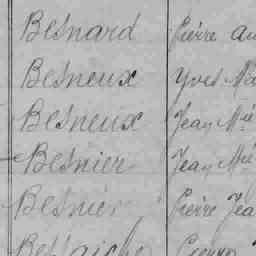 Besnard Pierre Au
Besneux Yves Ma
Besneux Jean Mie
Besnier Jean Mie
Besnier Pierre Jea
Pierre